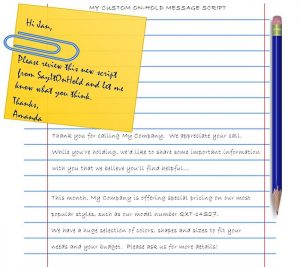 MY CUSTOM ON-HOLD MESSAGE SCRIPT
Hi Jan,
Please review this new script
from SayItOnHold and let me
know what you think.
Thanks,
Amanda
Thank you for calling My Company. We appreciate your call.
While you're holding, we'd like to share some important information
with you that we believe you'll find helpful...
This month, My Company is offering special pricing on our most
popular styles, such as our model number QXT-14S27.
We have a huge selection of colors, shapes and sizes to fit your
needs and your budget. Please ask us for more details!